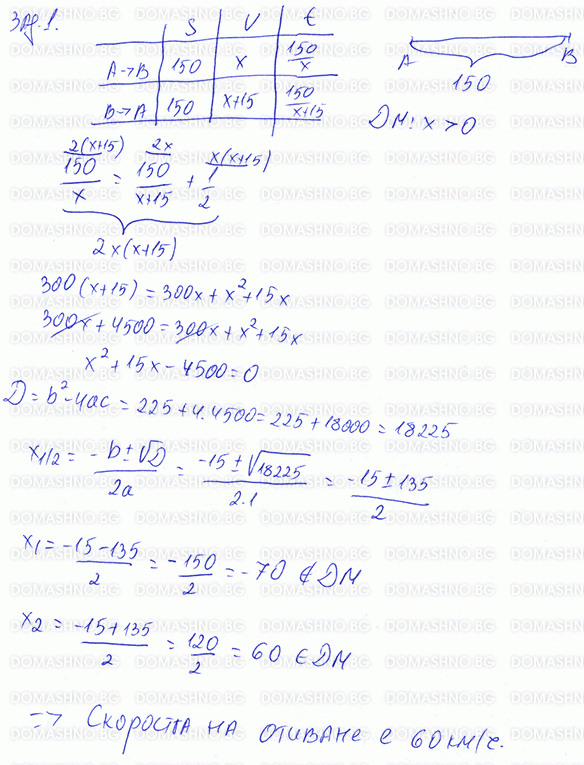 Зад. 1.
S V t
A→B 150 x 150/x
B→A 150 x+15 150/(x+15)
A B
150
ДМ: x > 0
2(x+15) 2x x(x+15)
150/x = 150/(x+15) + 1/2
2x(x+15)
300(x+15) = 300x + x²+15x
300x + 4500 = 300x + x²+15x
x²+15x-4500=0
D = b²-4ac = 225+4.4500 = 225+18000 = 18225
x1/2 = (-b±√D)/2a = (-15±√18225)/2.1 = (-15±135)/2
x1 = (-15-135)/2 = -150/2 = -70 ∉ ДМ
x2 = (-15+135)/2 = 120/2 = 60 ∈ ДМ
=> Скоростта на отиване е 60 км/ч.
DOMASHNO.BG